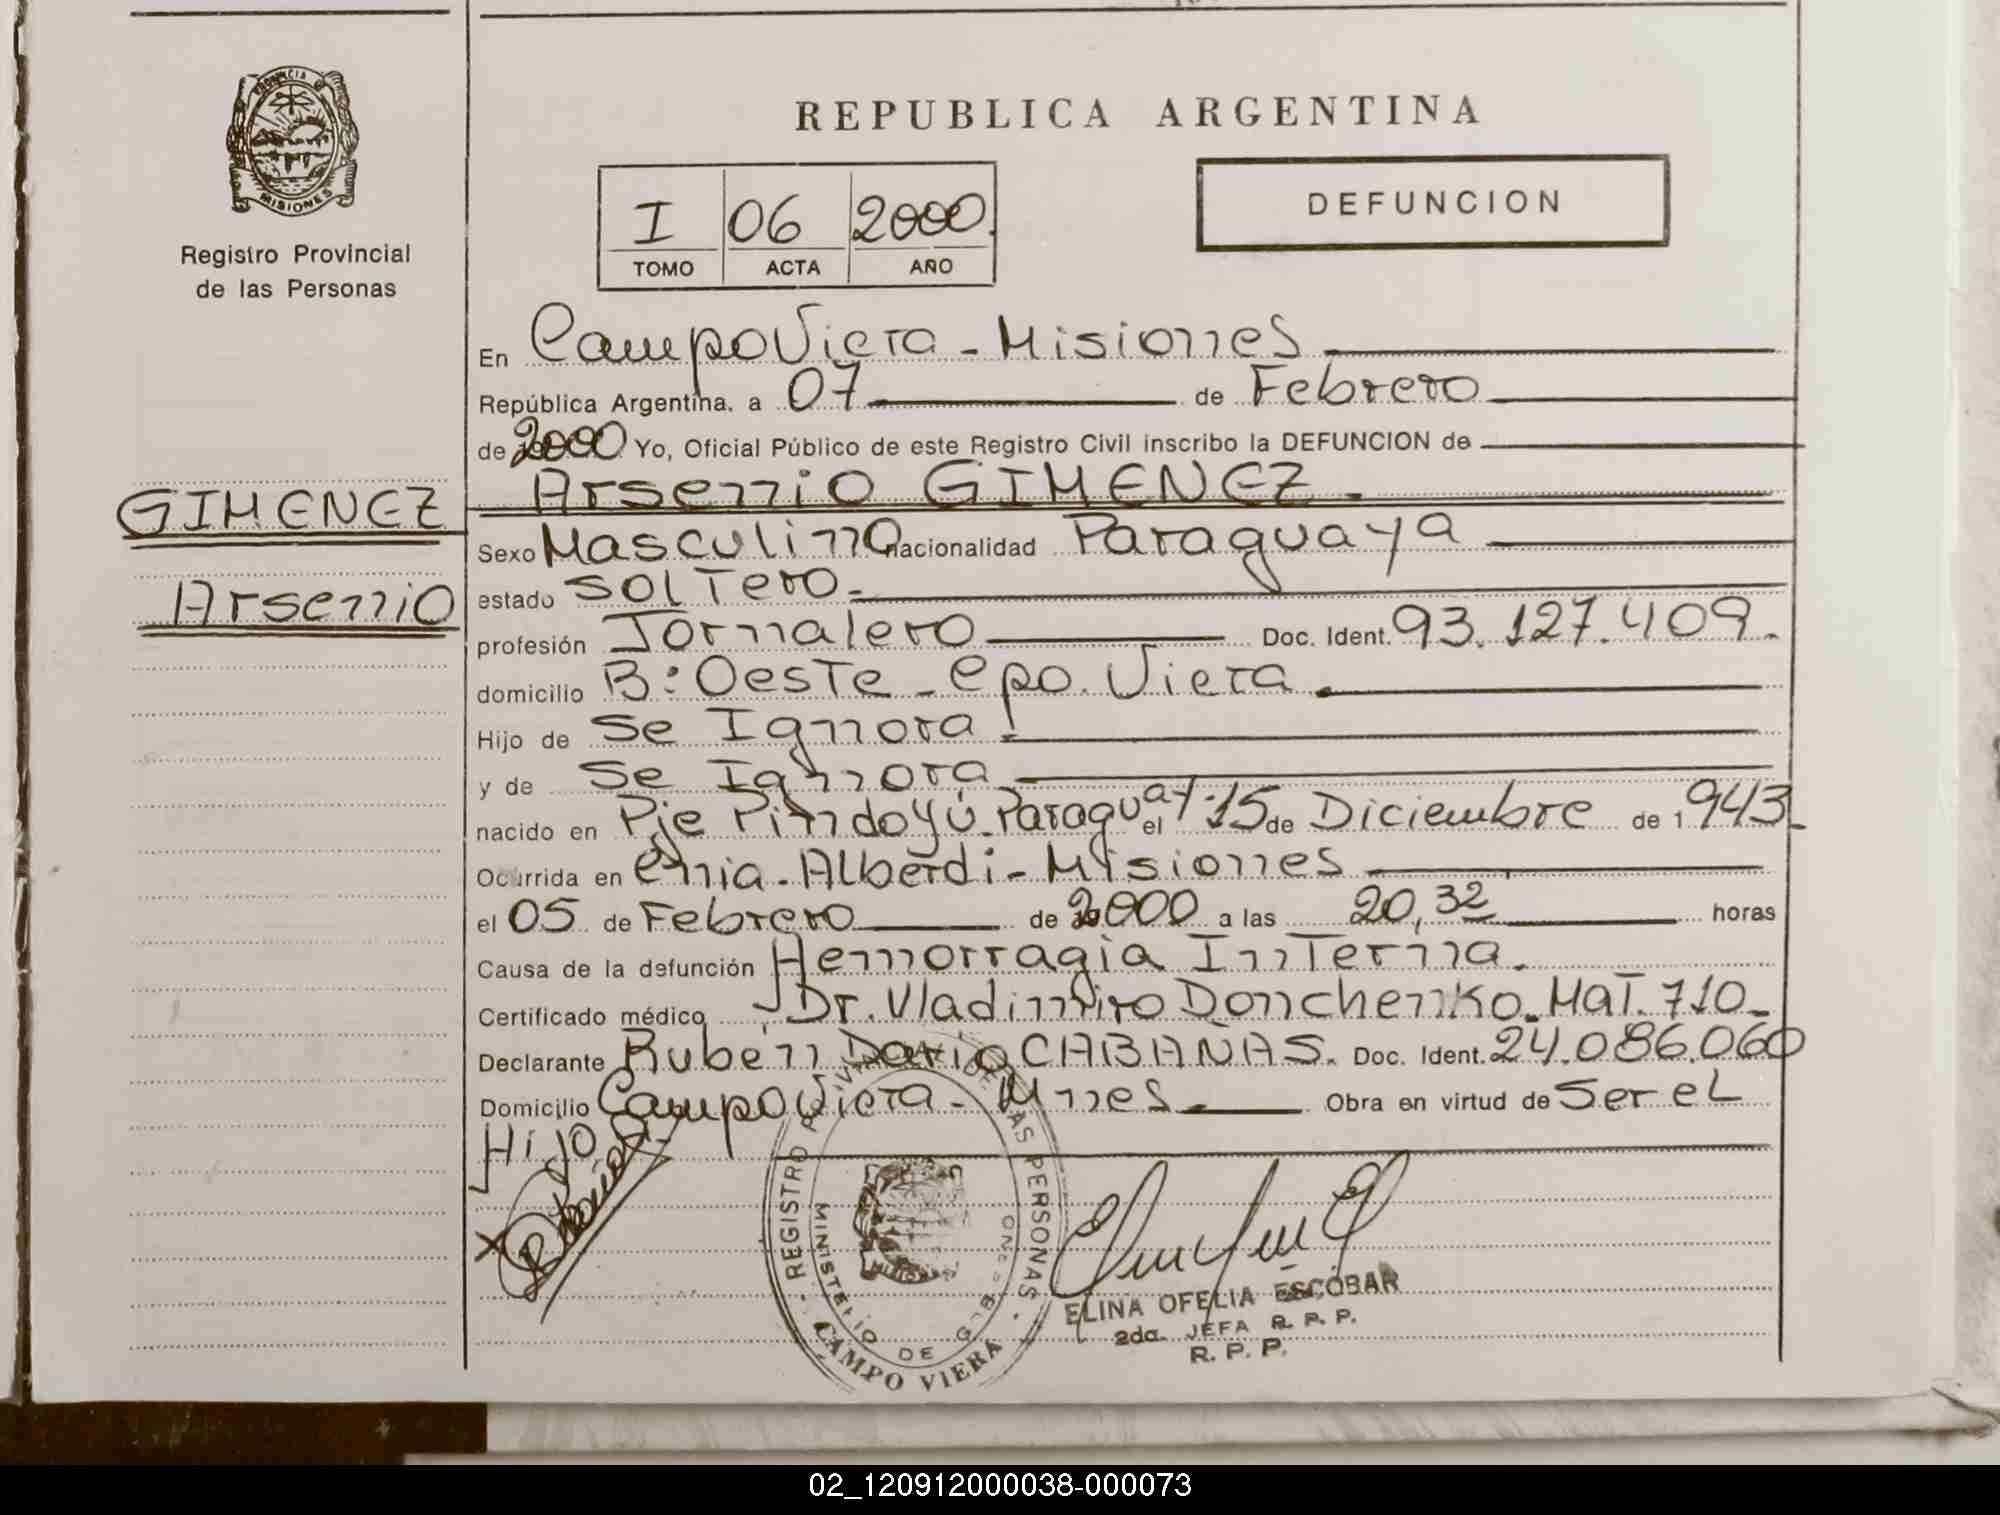 PROVINCIA DE
MISIONES
Registro Provincial
de las Personas
GIMENEZ
Arsenio
REPUBLICA ARGENTINA
I 06 2000
TOMO ACTA AÑO
DEFUNCION
En Campo Viera - Misiones
República Argentina, a 07 de Febrero
de 2000 Yo, Oficial Público de este Registro Civil inscribo la DEFUNCION de
Arsenio GIMENEZ.
Sexo Masculino nacionalidad Paraguaya
estado Soltero.
profesión Jornalero Doc. Ident. 93.127.409.
domicilio B: Oeste - Cpo. Viera.
Hijo de Se Ignora.
y de Se Ignora
nacido en Pje Pindoyú. Paraguay. el 15 de Diciembre de 1943
Ocurrida en Cnia. Alberdi - Misiones
el 05 de Febrero de 2000 a las 20,32 horas
Causa de la defunción Hemorragia Interna.
Certificado médico Dr. Vladimiro Donchenko. Mat. 710.
Declarante Rubén Darío CABAÑAS. Doc. Ident. 24.086.060
Domicilio Campo Viera - Mnes. Obra en virtud de Ser el
Hijo
REGISTRO PROVINCIAL DE LAS PERSONAS
MINISTERIO DE
CAMPO VIERA
ELINA OFELIA ESCOBAR
2da. JEFA R. P. P.
R. P. P.
02_120912000038-000073